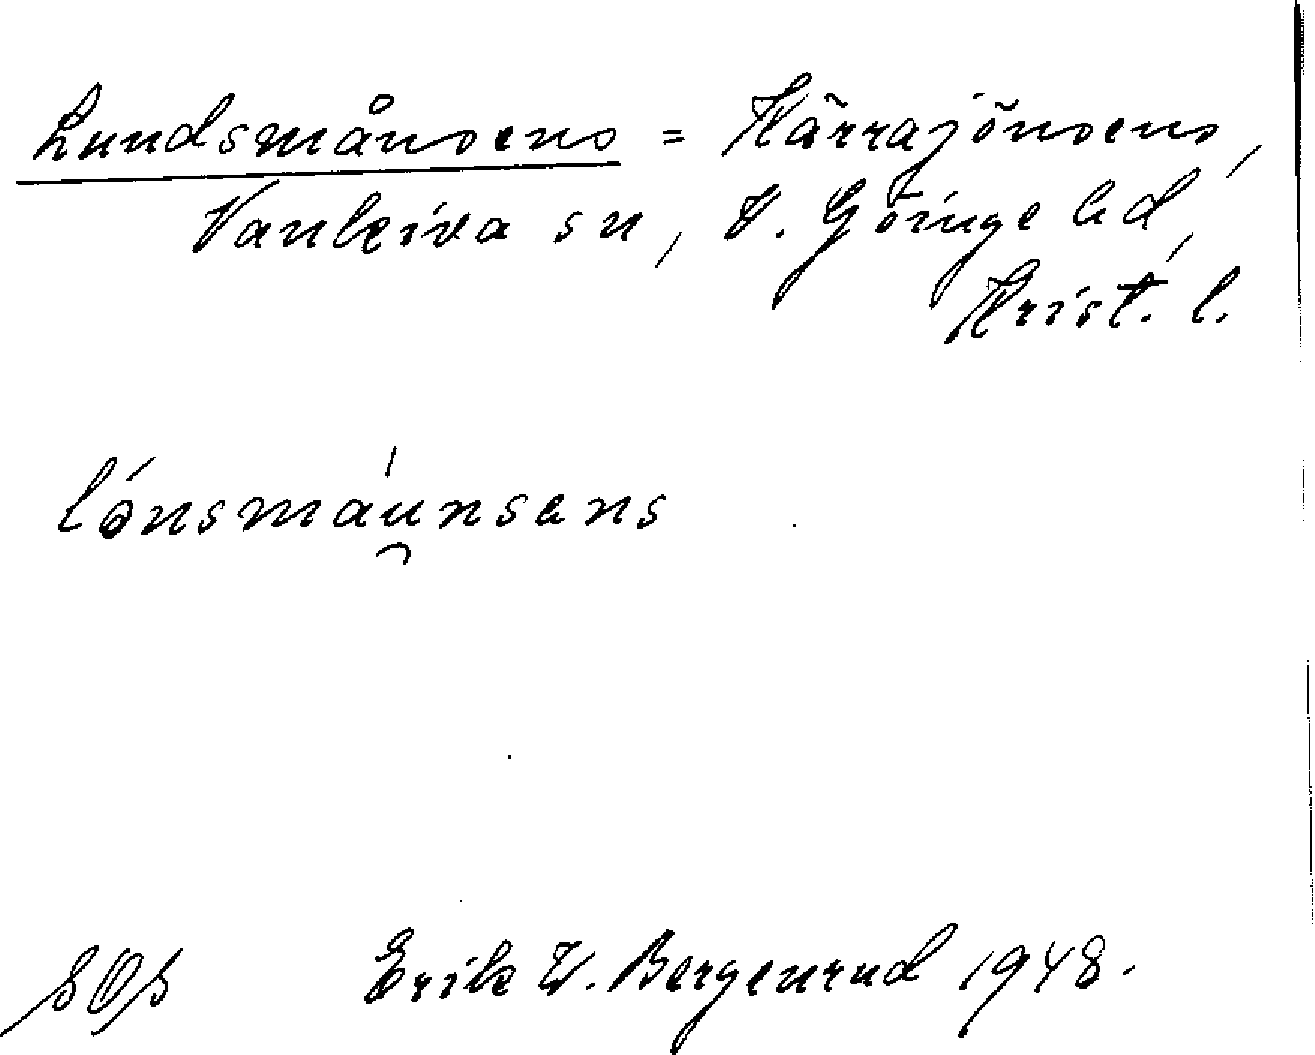 Lundsmånsens = Kärrajönsens,
Vankiva sn, V. Göinge hd,
Krist. l.
lónsmáunsens
SOS Erik W. Bergenrud 1948.